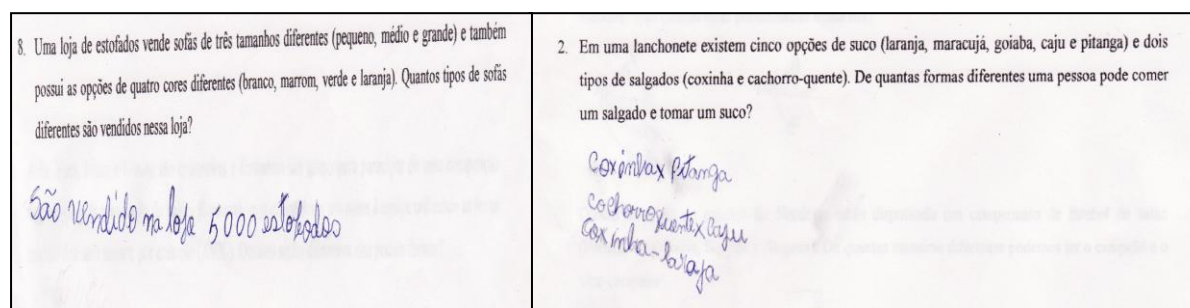 8. Uma loja de estofados vende sofás de três tamanhos diferentes (pequeno, médio e grande) e também
possui as opções de quatro cores diferentes (branco, marrom, verde e laranja). Quantos tipos de sofás
diferentes são vendidos nessa loja?
São vendido na loja 5000 estofados
2. Em uma lanchonete existem cinco opções de suco (laranja, maracujá, goiaba, caju e pitanga) e dois
tipos de salgados (coxinha e cachorro-quente). De quantas formas diferentes uma pessoa pode comer
um salgado e tomar um suco?
Coxinha x Pitanga
cachorro quente x caju
coxinha-laraja